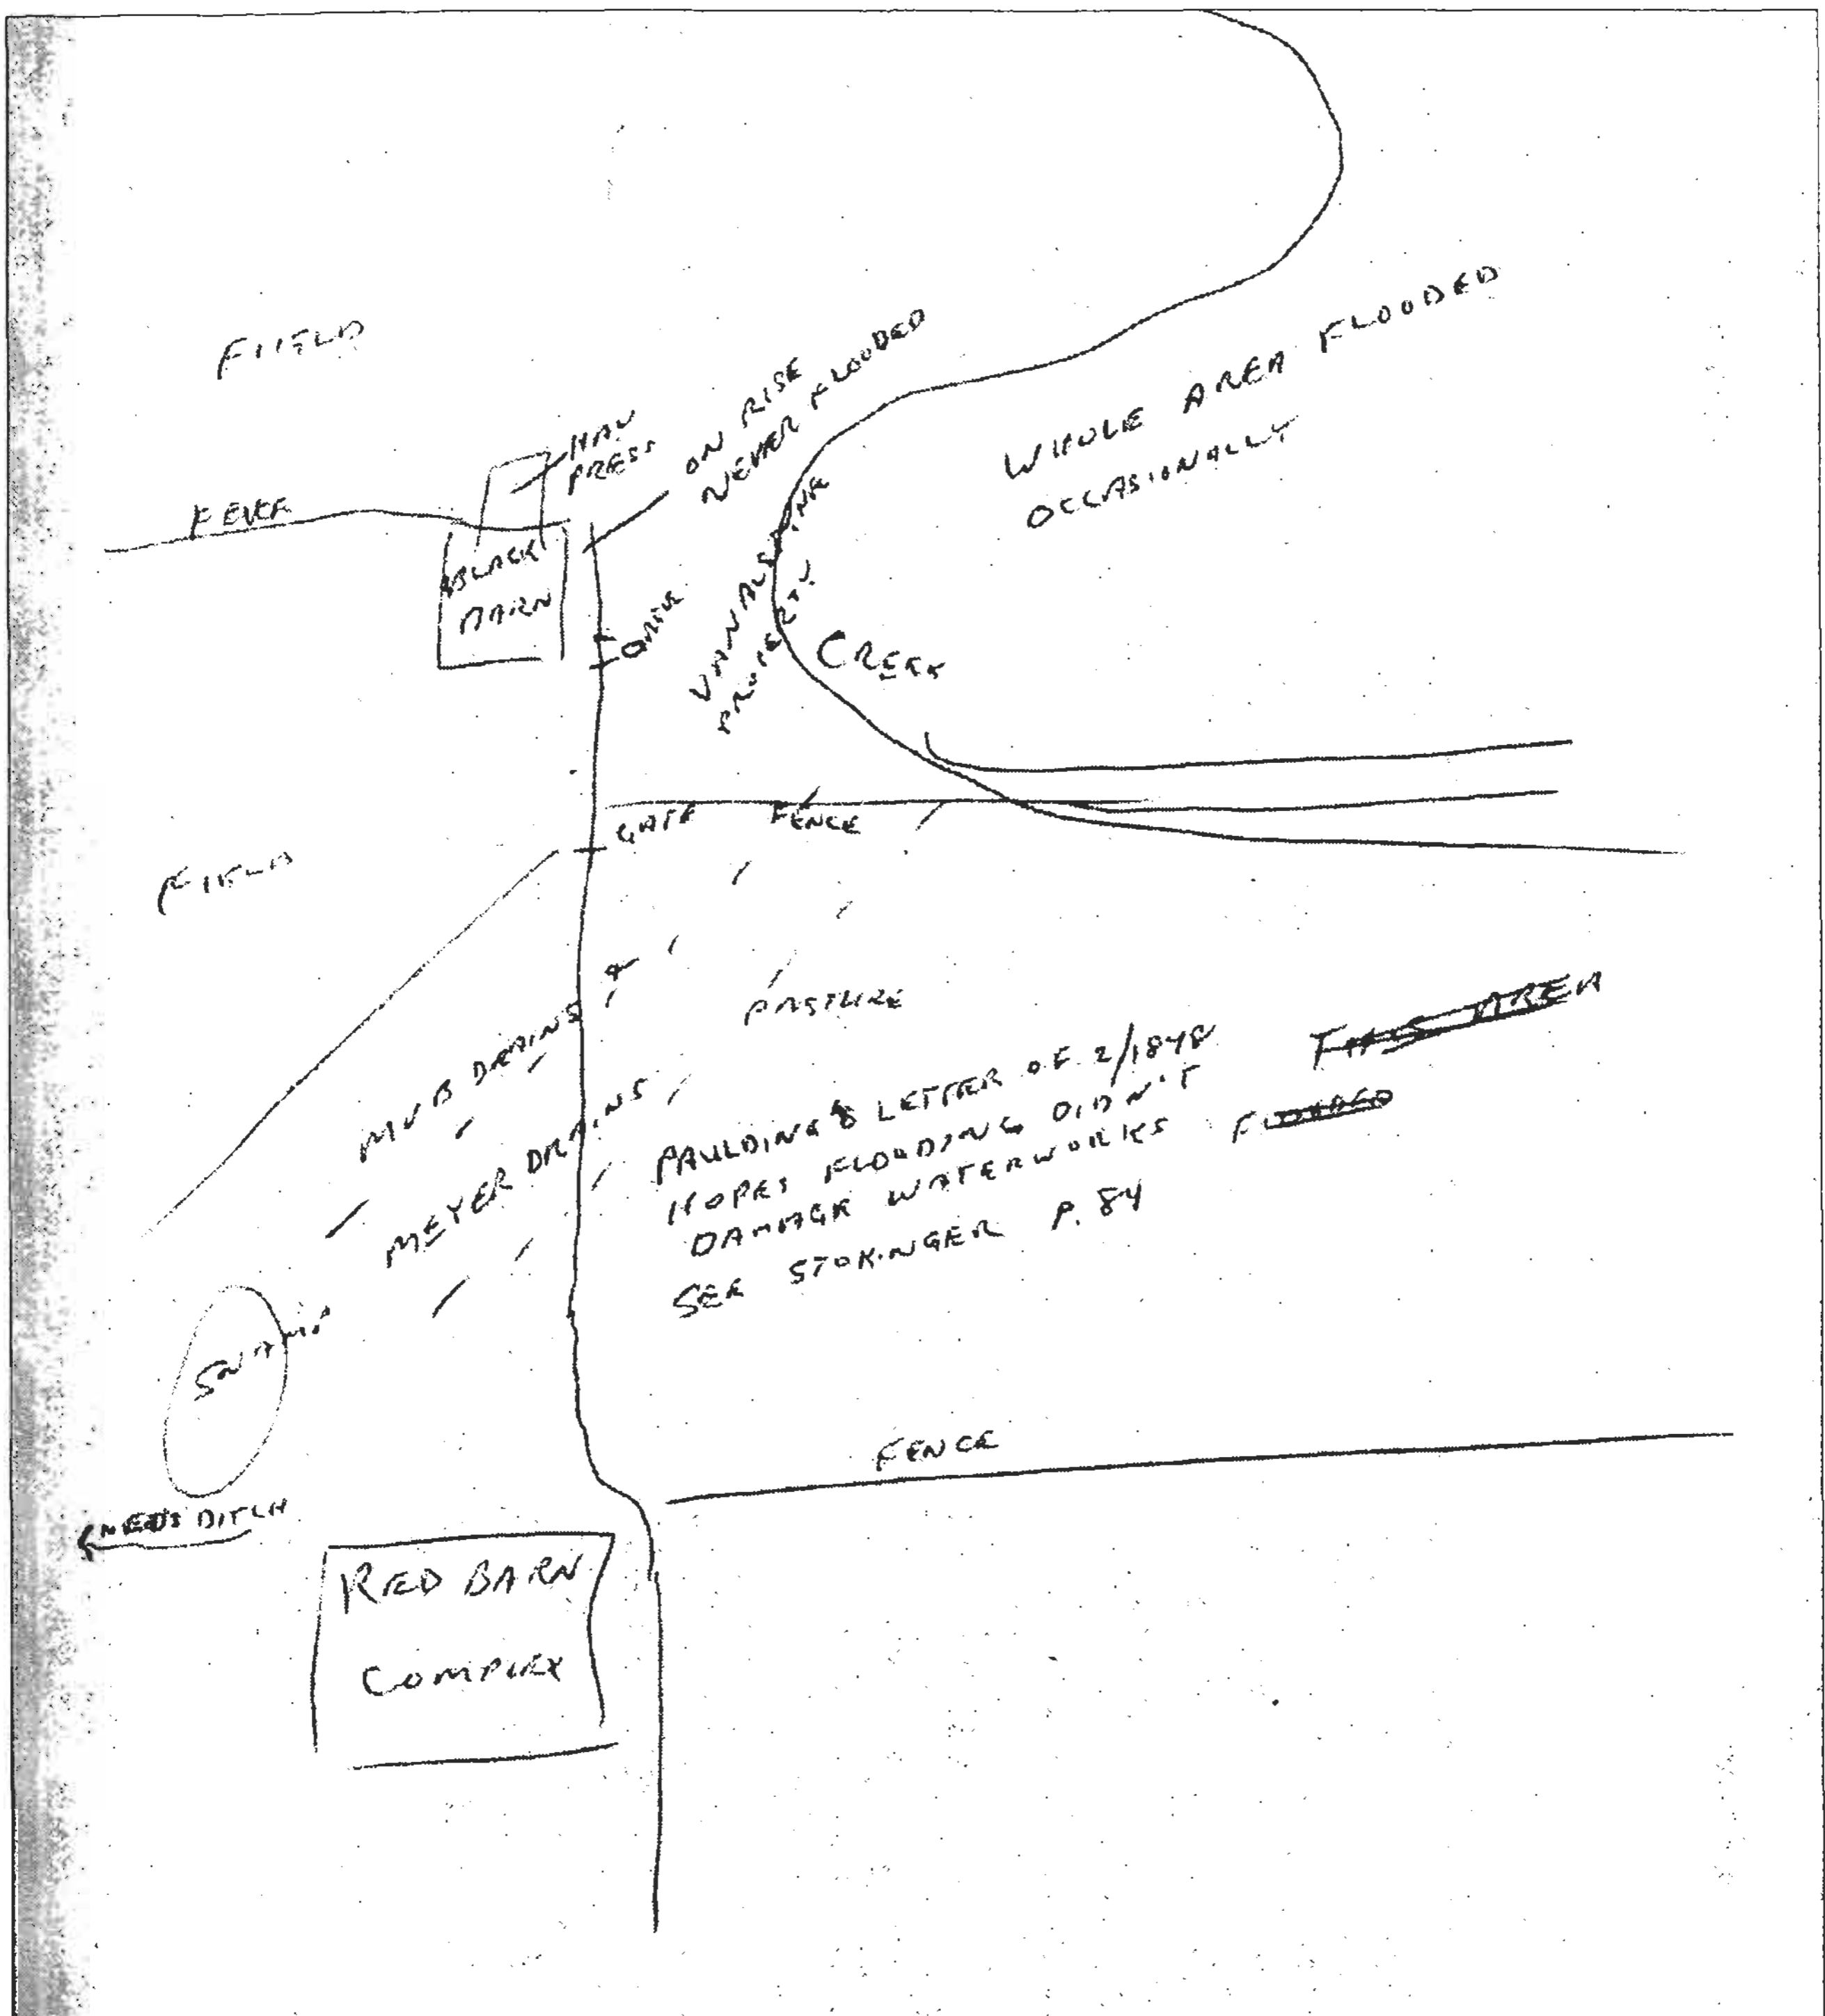 FIELD
HAY
PRESS
ON RISE
NEVER FLOODED
WHOLE AREA FLOODED
OCCASIONALLY
FENCE
BLACK
BARN
VANALSTINE
PROPERTY
CREEK
GATE
FENCE
FIELD
PASTURE
MVB DRAINS
MEYER DRAINS
PAULDING LETTER OF 2/1848
HOPES FLOODING DIDN'T
DAMAGE WATERWORKS
SEE STOKINGER P. 84
THIS AREA
FLOODED
SWAMP
FENCE
NEEDS DITCH
RED BARN
COMPLEX